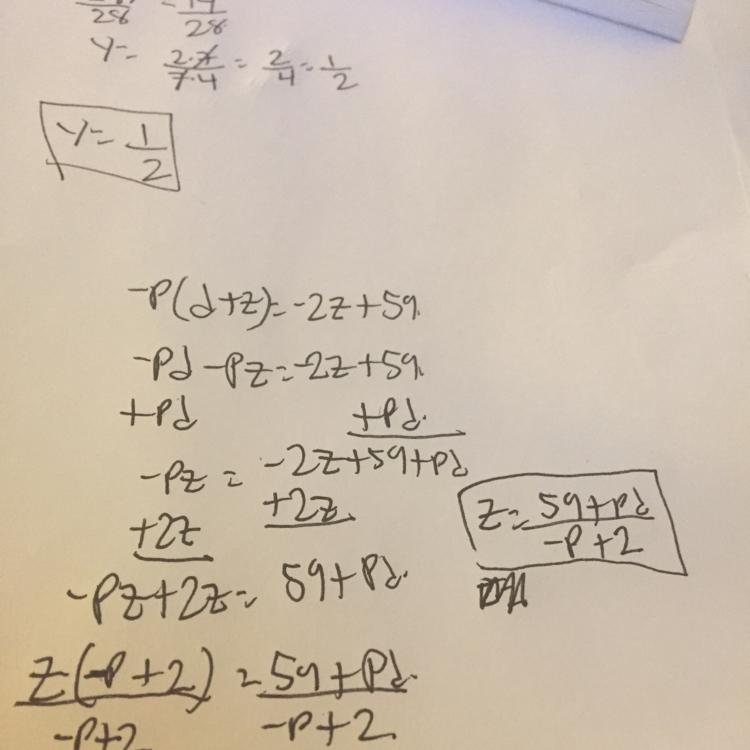 28 28
Y= 2·7/7·4 = 2/4 = 1/2
Y= 1/2
-P(d+z)=-2z+59
-Pd-Pz=-2z+59
+Pd +Pd
-Pz = -2z+59+Pd
+2z +2z
-Pz+2z= 59+Pd
z(-P+2) = 59+Pd
-P+2 -P+2
z= 59+Pd/-P+2